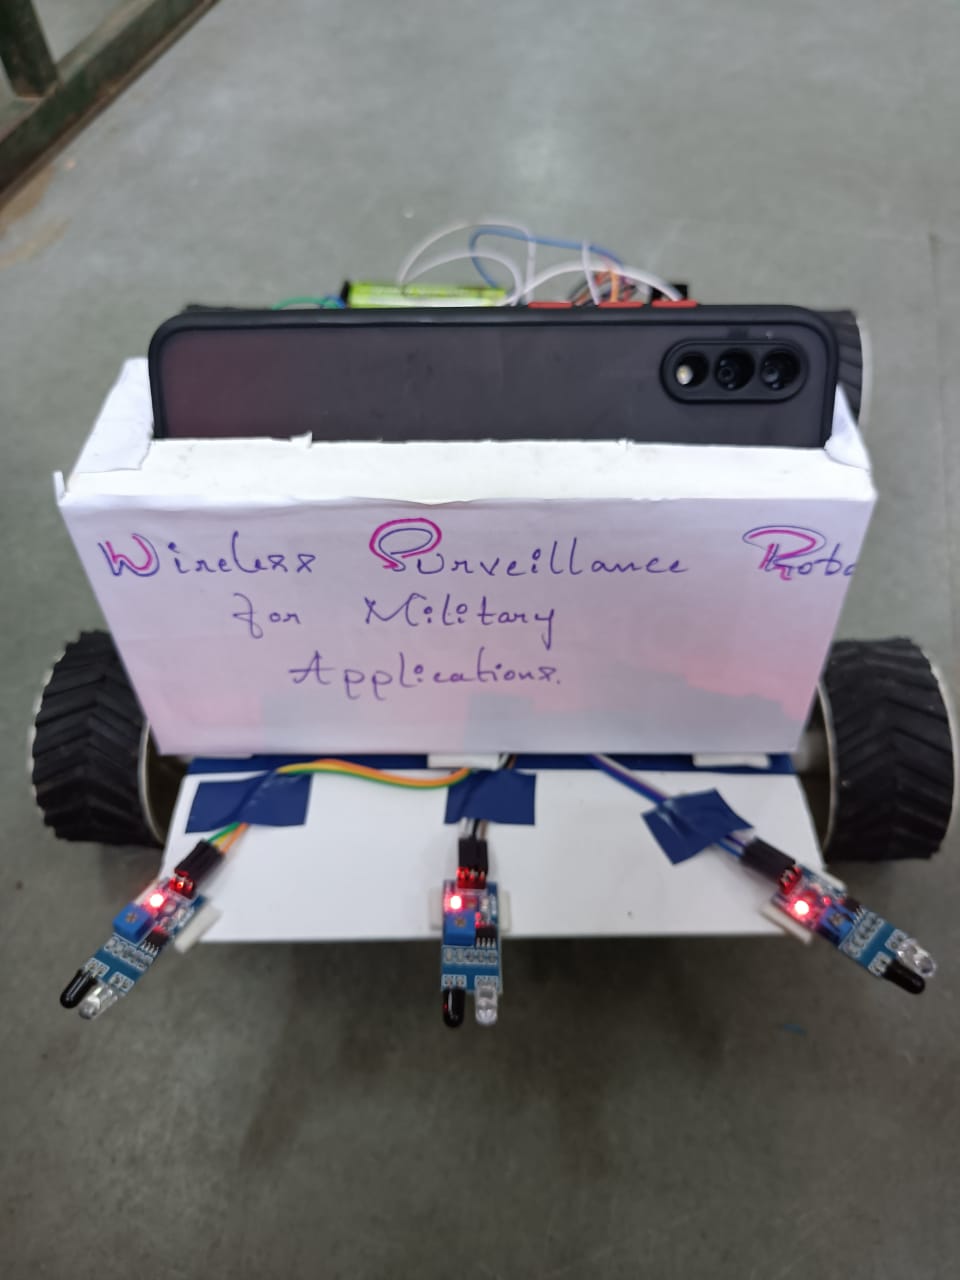 Wireless Surveillance Robo
for Military
Applications.